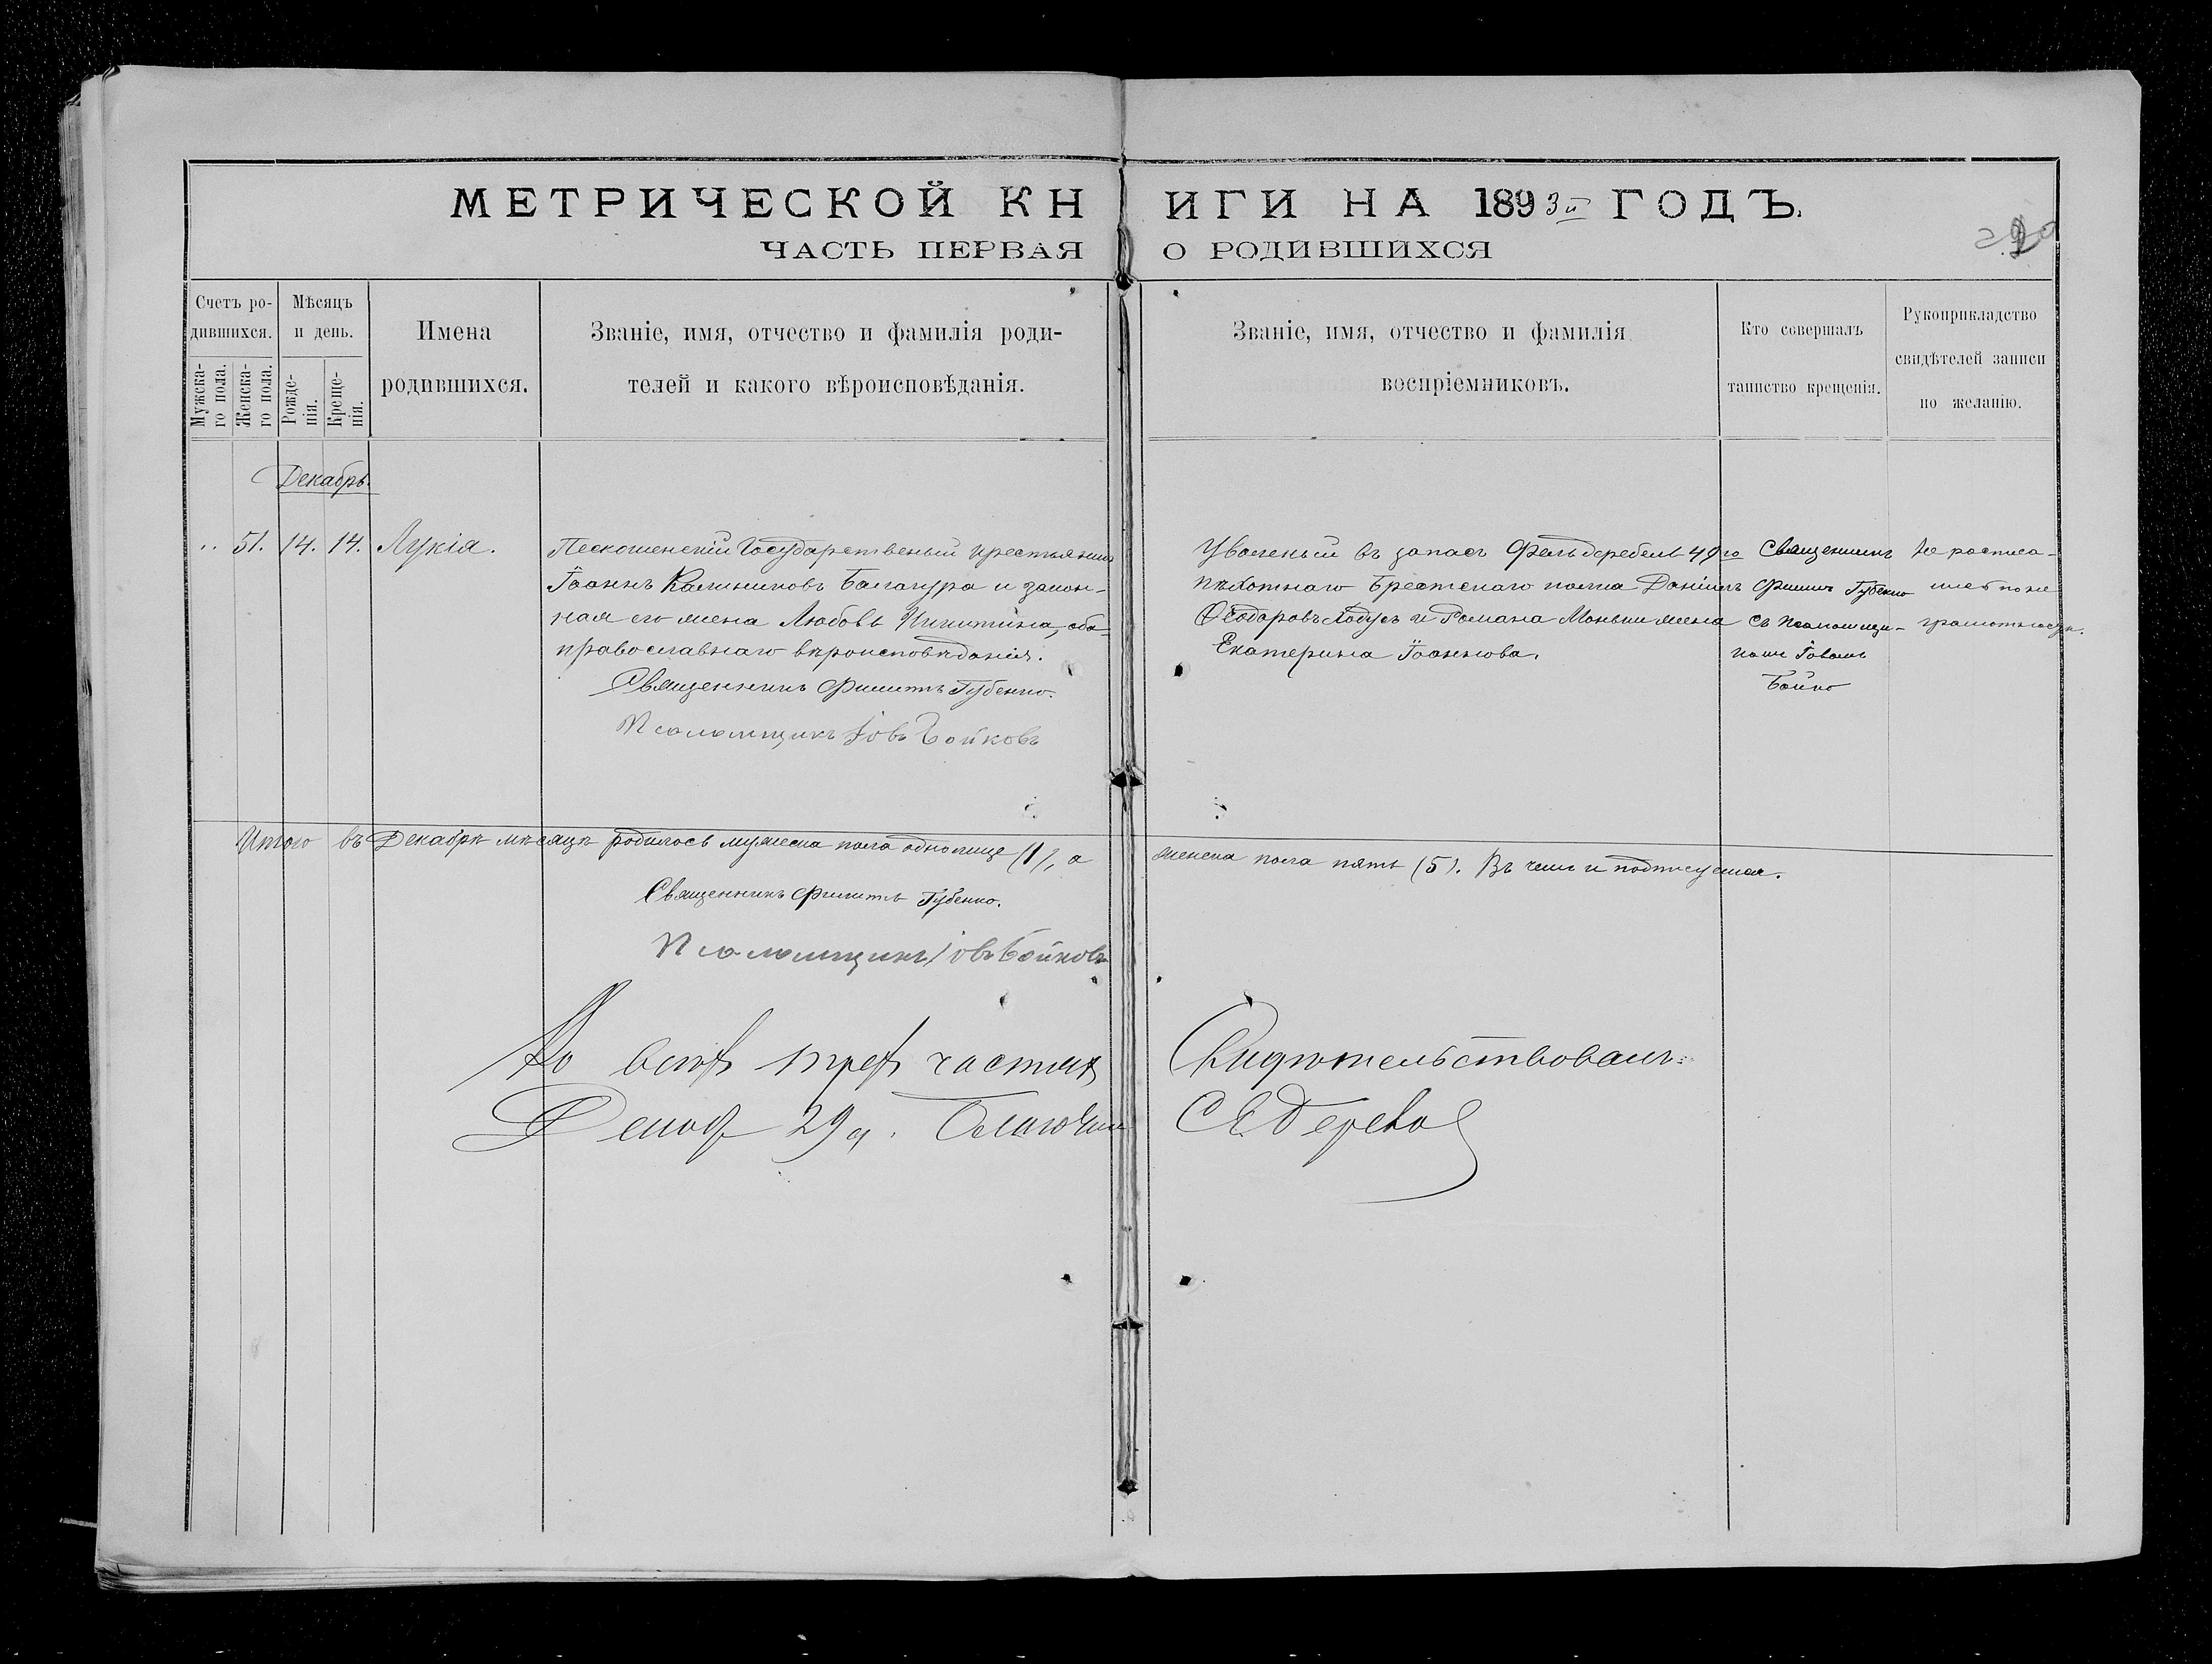 МЕТРИЧЕСКОЙ КНИГИ НА 1893й ГОДЪ.
ЧАСТЬ ПЕРВАЯ О РОДИВШИХСЯ
Счетъ родившихся.
Мужскаго пола.
Женскаго пола.
Мѣсяцъ и день.
Рожденія.
Крещенія.
Имена
родившихся.
Званіе, имя, отчество и фамилія роди-
телей и какого вѣроисповѣданія.
Званіе, имя, отчество и фамилія
воспріемниковъ.
Кто совершалъ
таинство крещенія.
Рукоприкладство
свидѣтелей записи
по желанію.
Декабрь.
51. 14. 14. Лукія.
Государственый крестьянинъ
Іоаннъ Калиниковъ Балагура и закон-
ная его жена Любовь Никитина, оба
православнаго вѣроисповѣданія.
Священникъ Филиппъ Губенко.
Псаломщикъ Іовъ Бойковъ
Уволеный въ запасъ Фельдфебель 49го
пѣхотнаго Брестскаго полка Даніилъ
Ѳеодоровъ Ходусъ и Романа Маньки жена
Екатерина Іоаннова.
Священникъ
Филиппъ Губенко
съ псаломщи-
комъ Іовомъ
Бойко
Не росписа-
лись по не
грамотности.
Итого въ Декабрѣ мѣсяцѣ родилось мужеска пола одно лице (1), а женска пола пять (5). Въ чемъ и подписуемся.
Священникъ Филиппъ Губенко.
Псаломщикъ Іовъ Бойковъ
По всѣхъ трехъ частяхъ Свидѣтельствовалъ:
29 д.